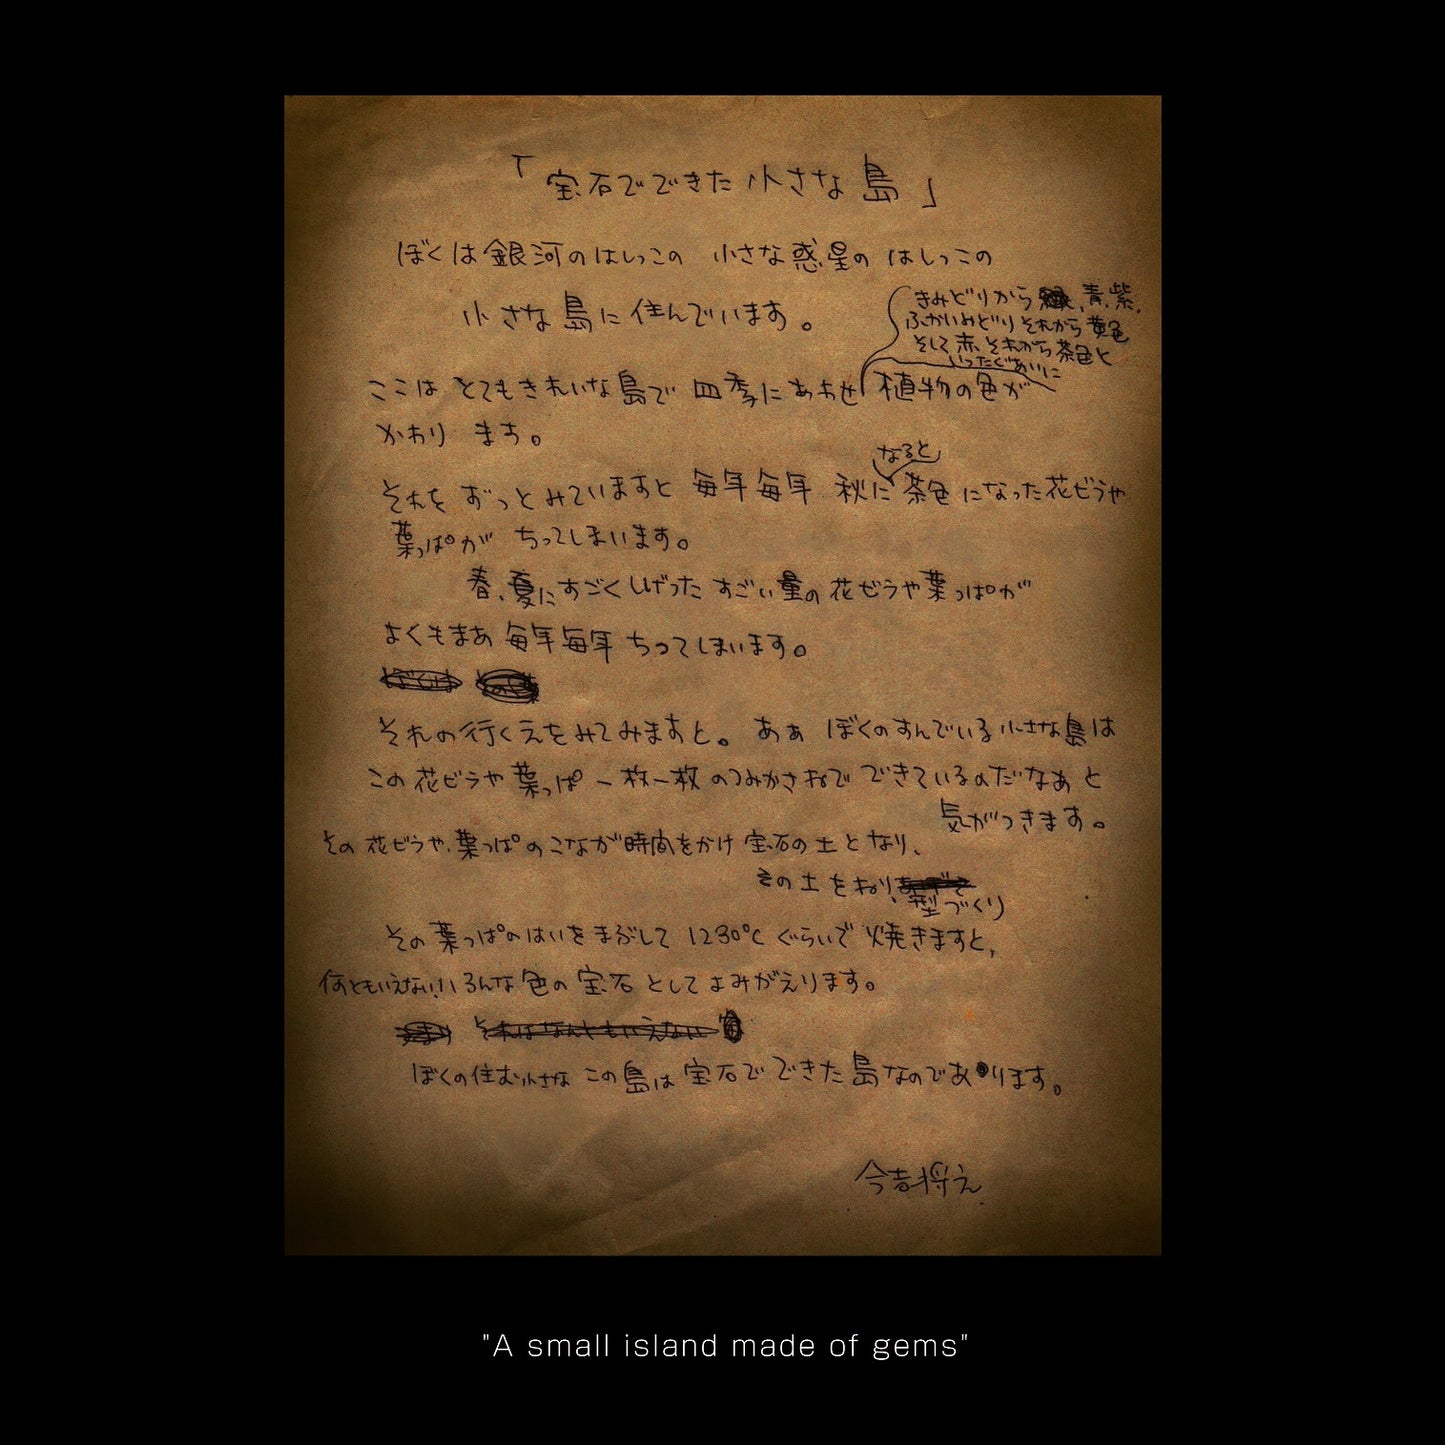 「宝石でできた小さな島」
ぼくは銀河のはしっこの 小さな惑星の はしっこの
小さな島に住んでいます。
きみどりから 、青、紫、
ふかいみどり それから 黄色
そして 赤 それから 茶色と
いったぐあいに
ここは とてもきれいな島で 四季にあわせ 植物の色が
かわり ます。
なると
それを ずっとみていますと 毎年毎年 秋に 茶色になった花ビラや
葉っぱが ちってしまいます。
春、夏にすごくしげった すごい量の 花ビラや葉っぱが
よくもまあ 毎年毎年 ちってしまいます。
ぼくは
それの行くえをみてみますと。 ああ ぼくのすんでいる小さな島は
この花ビラや葉っぱ一枚一枚のつみかさねで できているのだなあと
気がつきます。
その花ビラや、葉っぱのこなが時間をかけ 宝石の土となり、
その土をねり、
型づくり
その葉っぱのはいをまぶして 1230℃ ぐらいで 焼きますと、
何ともいえないいろんな色の宝石としてよみがえります。
それはなんともいえない
ぼくの住む小さな この島は 宝石でできた島なのであります。
今吉将え
"A small island made of gems"